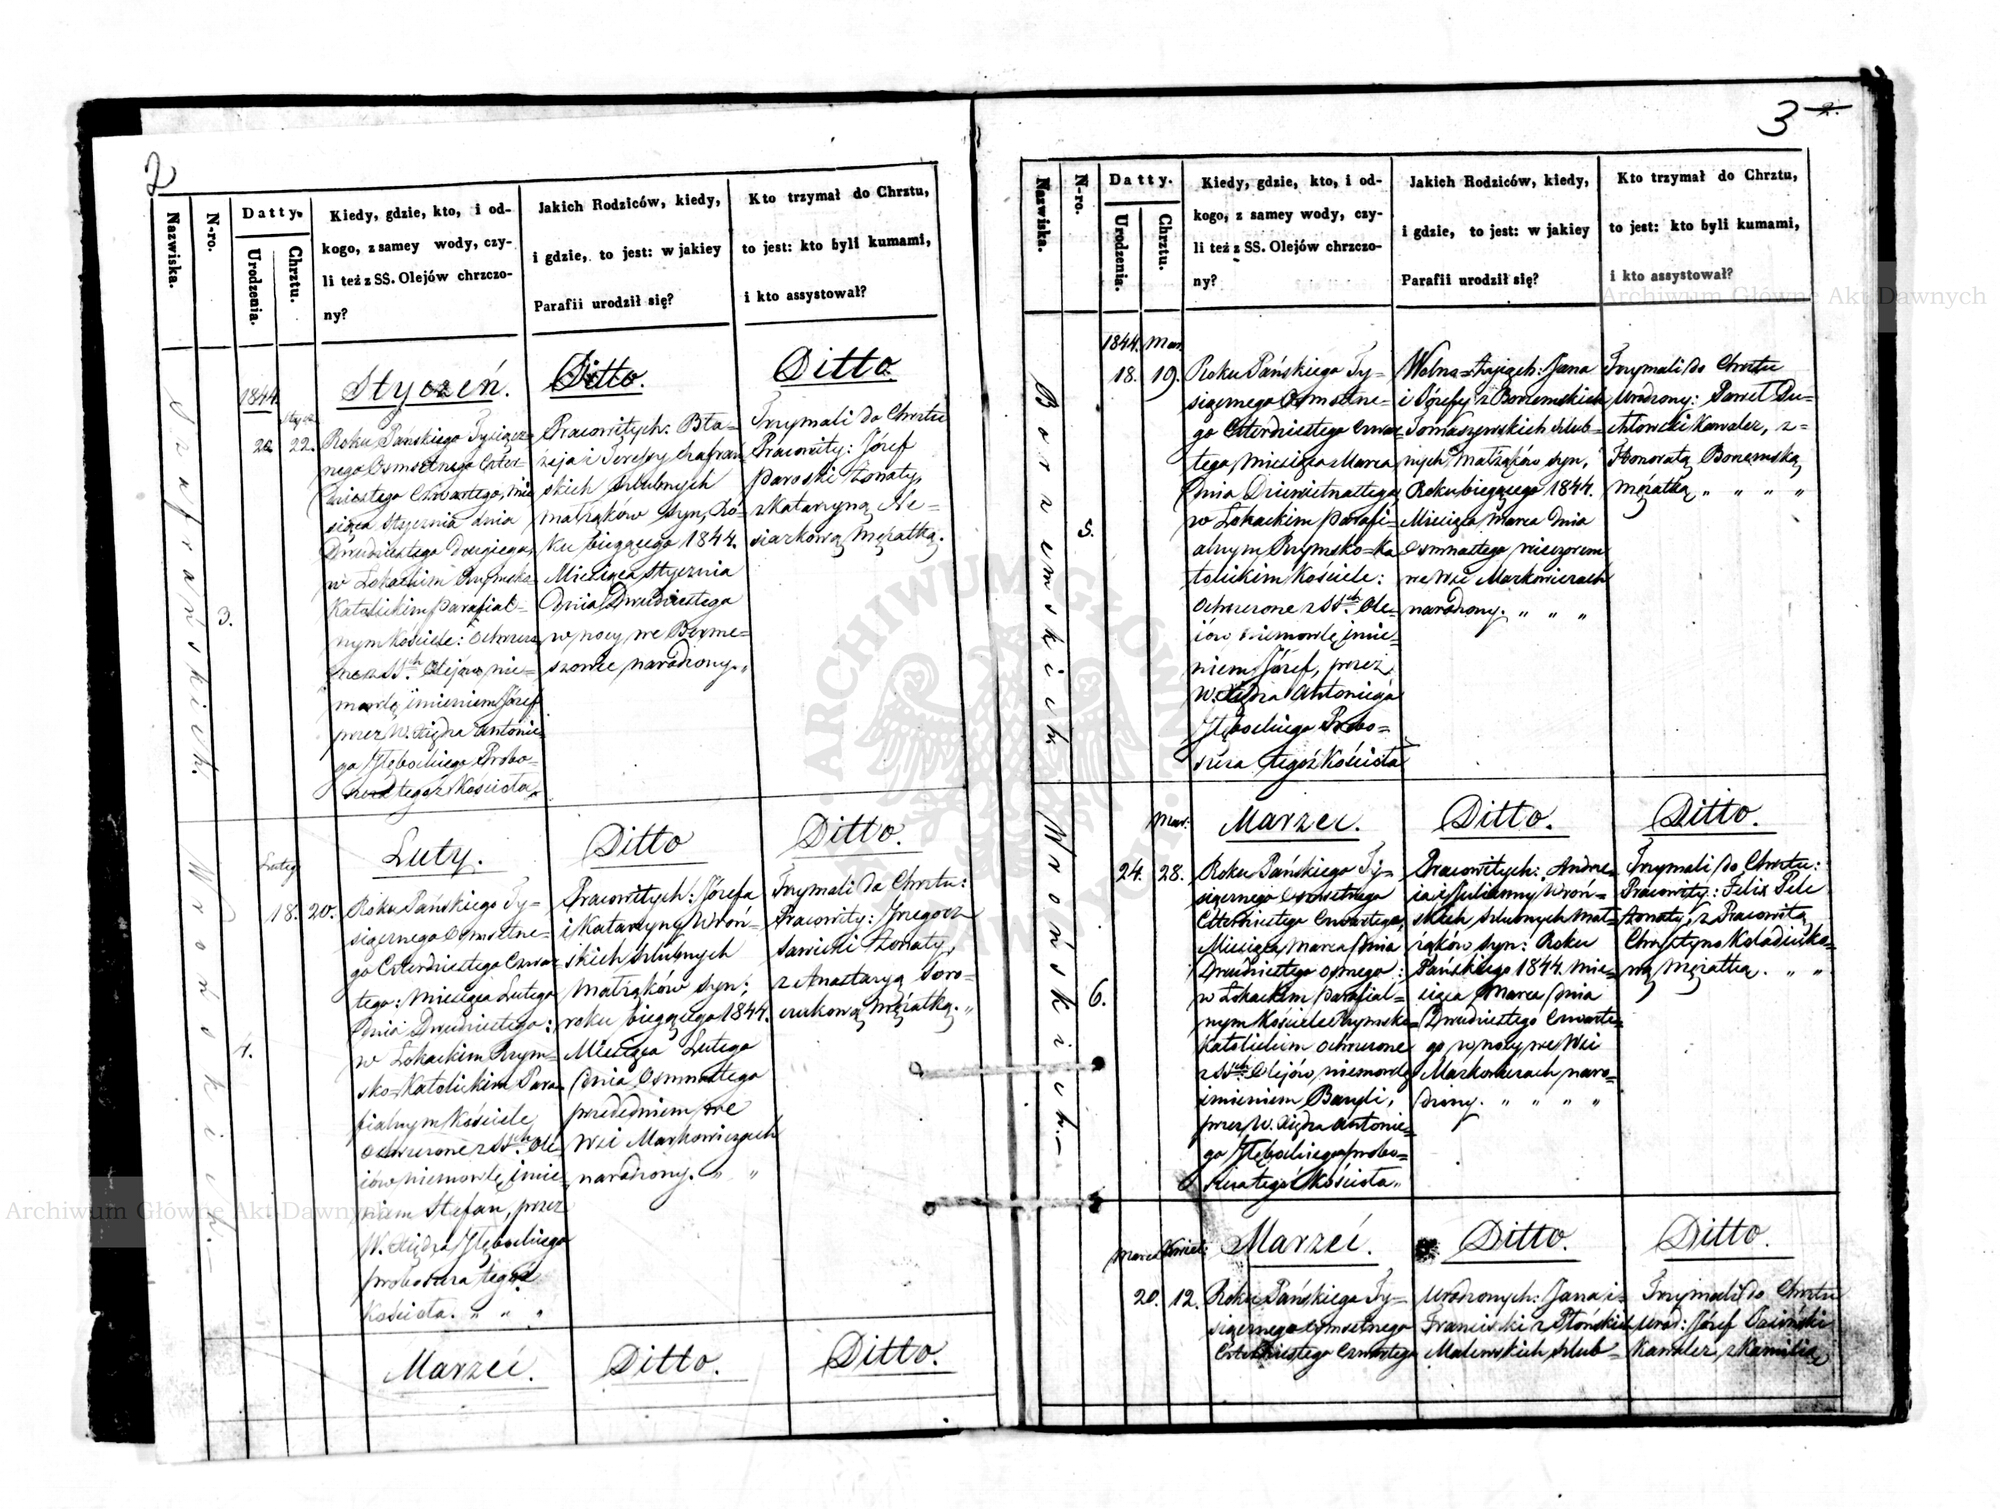 2
Nazwiska.
N-ro.
Datty.
Urodzenia.
Chrztu.
Kiedy, gdzie, kto, i od-
kogo, z samey wody, czy-
li też z SS. Olejów chrzczo-
ny?
Jakich Rodziców, kiedy,
i gdzie, to jest: w jakiey
Parafii urodził się?
Kto trzymał do Chrztu,
to jest: kto byli kumami,
i kto assystował?
Szafrańskich.
3.
1844
20. 22.
Styczeń.
Roku Pańskiego Tysiącz-
nego Osmsetnego Czter-
dziestego Czwartego, mie-
siąca Stycznia dnia
Dwudziestego Drugiego,
w Łokackim Rzymsko
Katolickim parafial-
nym Kościele: Ochrzczo-
ne z SS.ch Olejów, nie-
mowlę imieniem Józef
przez W. Xiędza Antonie-
go Głębockiego Probo-
szcza tegoż Kościoła.
Ditto.
Pracowitych: Bła-
żeja i Teressy Szafrań
skich szlubnych
małżąków syn, Ro-
ku bieżącego 1844.
Miesiąca Stycznia
dnia Dwudziestego
w nocy, we Berme-
szowce narodzony. "
Ditto
Trzymali do Chrztu
Pracowity: Józef
Paroski Żonaty,
z Katarzyną Ne-
siarkową Mężatką.
Wrońskich.
4.
Lutego
18. 20.
Luty.
Roku Pańskiego Ty-
siącznego Osmsetne-
go Czterdziestego Czwar
tego: Miesiąca Lutego
dnia Dwudziestego:
w Łokackim Rzym-
sko-Katolickim Para
fialnym Kościele
Ochrzczone z SS.ch Ole-
iów niemowlę imie-
niem Stefan, przez
W. Xiędza Głębockiego
proboszcza tegoż
Kościoła. " " "
Ditto
Pracowitych: Józefa
i Katarzyny Wroń-
skich szlubnych
Małżąków syn;
roku bieżącego 1844.
Miesiąca Lutego
dnia Osmnastego
przededniem, we
Wsi Markowiczach
narodzony. " "
Ditto.
Trzymali do Chrztu:
Pracowity: Grzegorz
Sawicki Żonaty,
z Anastazyą Toro-
czukową Mężatką. "
Marzeć.
Ditto.
Ditto.
3
Nazwiska.
N-ro.
Datty.
Urodzenia.
Chrztu.
Kiedy, gdzie, kto, i od-
kogo, z samey wody, czy-
li też z SS. Olejów chrzczo-
ny?
Jakich Rodziców, kiedy,
i gdzie, to jest: w jakiey
Parafii urodził się?
Kto trzymał do Chrztu,
to jest: kto byli kumami,
i kto assystował?
Borzemskich
5.
1844. Mar.
18. 19.
Roku Pańskiego Ty-
siącznego Osmsetne-
go Czterdziestego Czwar-
tego, Miesiąca Marca
dnia Dziewietnastego
w Łokackim parafi-
alnym Rzymsko-Ka
tolickim Kościele:
Ochrzczone z SS.ch Ole-
iów niemowlę imie-
niem Józef, przez
W. Xiędza Antoniego
Głębockiego Probo-
szcza tegoż Kościoła
Jana
i Józefy z Borzemskich
Tomaszewskich szlub-
nych małżąków syn,
Roku bieżącego 1844.
Miesiąca Marca dnia
Osmnastego wieczorem
we Wsi Markowiczach
narodzony. " " "
Trzymali do Chrztu
Urodzony: Paweł
Kawaler, z
Honoratą Borzemską
Mężatką " " " "
Wrońskich.
6.
Mar:
24. 28.
Marzec.
Roku Pańskiego Ty-
siącznego Osmsetnego
Czterdziestego Czwartego,
Miesiąca Marca dnia
Dwudziestego osmego:
w Łokackim Parafial-
nym Kościele Rzymsko-
Katolickim ochrzczone
z SS.ch Olejów, niemowlę
imieniem Bazyli,
przez W. Xiędza Antonie-
go Głębockiego probo-
szcza tegoż Kościoła "
Ditto.
Pracowitych: Andrze
ia i Julianny Wroń-
skich szlubnych Mał-
żąków syn: Roku
Pańskiego 1844. Mie-
siąca Marca dnia
Dwudziestego Czwarte-
go w nocy we Wsi
Markowiczach naro-
dzony. " " " "
Ditto.
Trzymali do Chrztu:
Pracowity: Felix Pilc
Żonaty, z Pracowitą
Chrystyną
Mężatką. " "
Marca Kwiet:
20. 12.
Marzeć.
Roku Pańskiego Ty-
siącznego Osmsetnego
Czterdziestego Czwartego
Ditto.
Urodzonych: Jana i
Franciszki z Płońskich
Malewskich szlub-
Ditto.
Trzymali do Chrztu
Urod: Józef
Kawaler, z Kamilią
ARCHIWUM GŁÓWNE AKT DAWNYCH
Archiwum Główne Akt Dawnych
Archiwum Główne Akt Dawnych